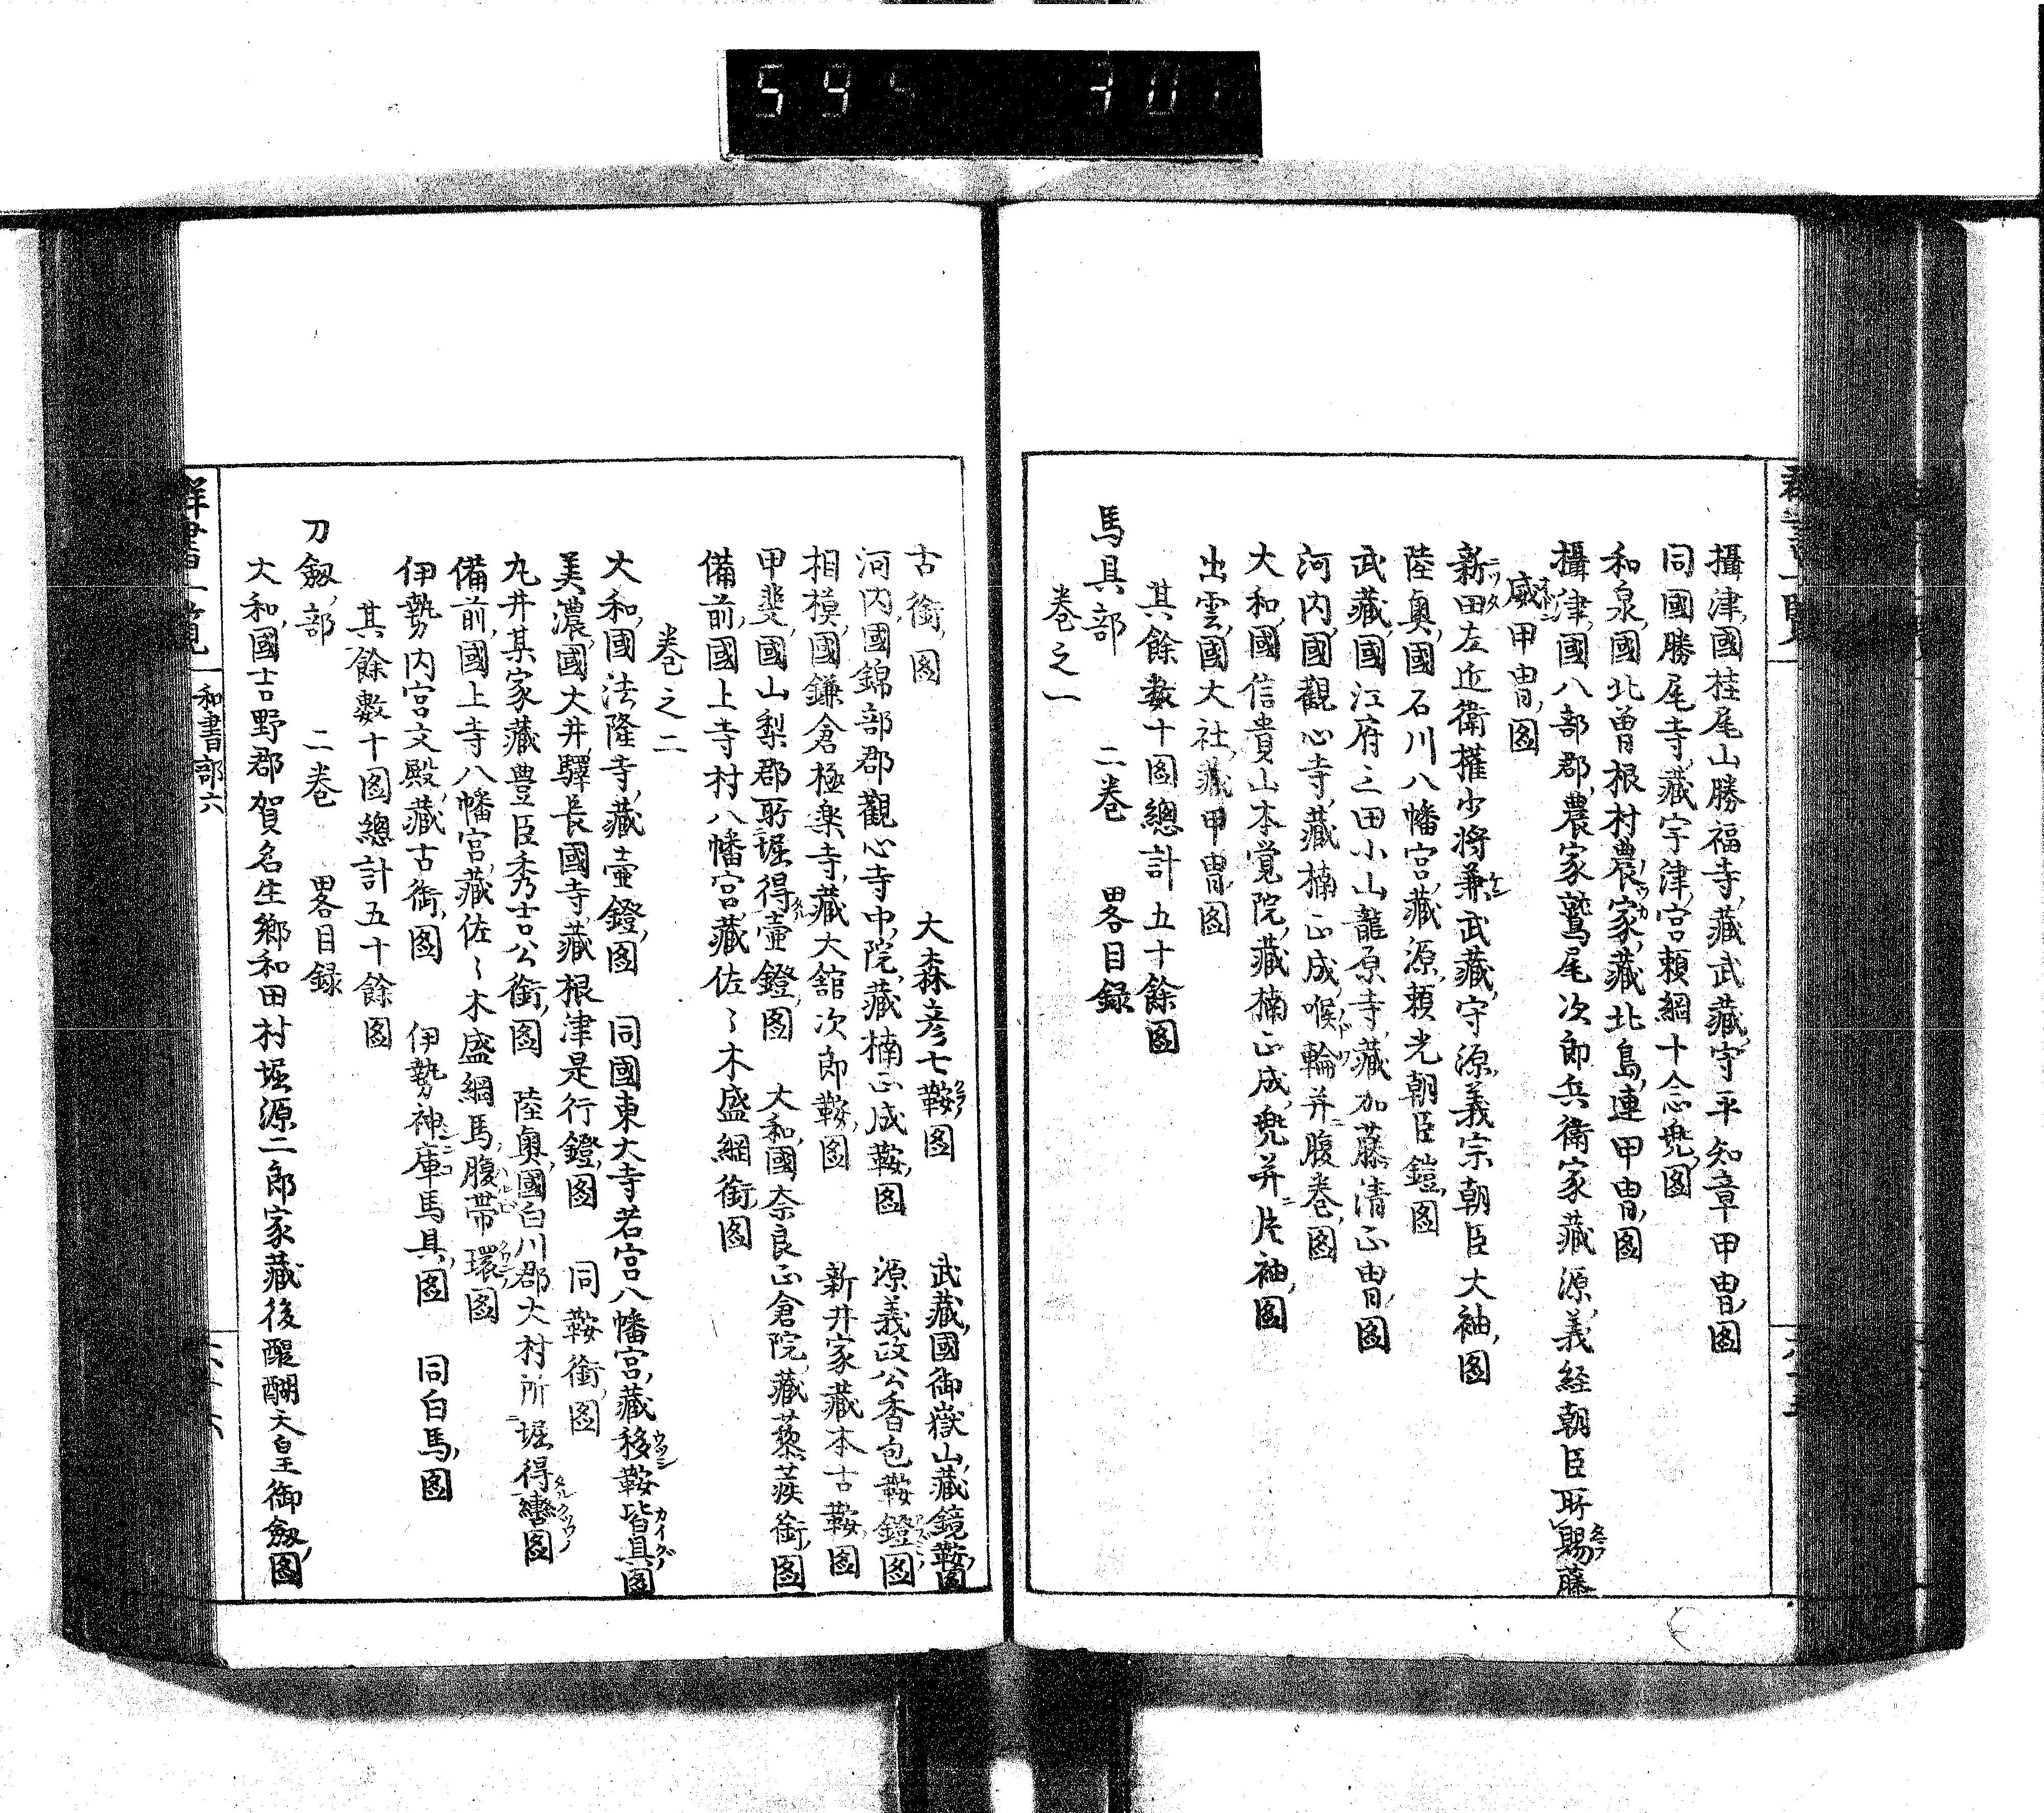 595 301
攝津國桂尾山勝福寺藏武藏守平知章甲冑圖
同國勝尾寺藏宇津宮頼綱十念兜圖
和泉國北曽根村農家藏北畠連甲冑圖
攝津國八部郡農家鷲尾次郎兵衛家藏源義経朝臣所賜藤
威甲冑圖
新田左近衛權少将兼武藏守源義宗朝臣大袖圖
陸奥國石川八幡宮藏源頼光朝臣鎧圖
武藏國江府三田小山龍原寺藏加藤清正冑圖
河内國觀心寺藏楠正成喉輪并腹巻圖
大和國信貴山本覚院藏楠正成兜并片袖圖
出雲國大社藏甲冑圖
其餘數十圖總計五十餘圖
馬具部 二巻 畧目録
巻之一
古銜圖 大森彦七鞍圖 武藏國御嶽山藏鏡鞍圖
河内國錦部郡觀心寺中院藏楠正成鞍圖 源義政公香包鞍鐙圖
相模國鎌倉極楽寺藏大舘次郎鞍圖 新井家藏本古鞍圖
甲斐國山梨郡所堀得壷鐙圖 大和國奈良正倉院藏蒺䔧銜圖
備前國上寺村八幡宮藏佐々木盛綱銜圖
巻之二
大和國法隆寺藏壷鐙圖 同國東大寺若宮八幡宮藏移鞍皆具圖
美濃國大井驛長國寺藏根津是行鐙圖 同鞍銜圖
九井某家藏豊臣秀吉公銜圖 陸奥國白川郡大村所堀得轡圖
備前國上寺八幡宮藏佐々木盛綱馬腹帯環圖
伊勢内宮文殿藏古銜圖 伊勢神庫馬具圖 同白馬圖
其餘數十圖總計五十餘圖
刀劔部 二巻 畧目録
大和國吉野郡賀名生郷和田村堀源二郎家藏後醍醐天皇御劔圖
群書一覧 和書部六